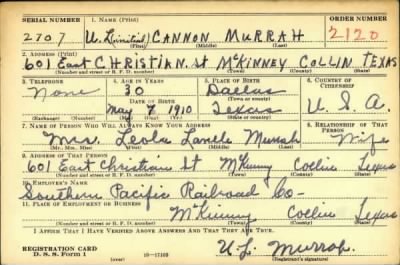 SERIAL NUMBER 1. NAME (Print) ORDER NUMBER
2707 U. CANNON MURRAH 2120
(First) (Middle) (Last)
2. ADDRESS (Print)
601 East CHRISTIAN. St McKINNEY COLLIN TEXAS
(Number and street or R. F. D. number) (Town) (County) (State)
3. TELEPHONE 4. AGE IN YEARS 5. PLACE OF BIRTH 6. COUNTRY OF CITIZENSHIP
None 30 Dallas
DATE OF BIRTH (Town or county)
May 7 1910 Texas U. S. A.
(Exchange) (Number) (Mo.) (Day) (Yr.) (State or country)
7. NAME OF PERSON WHO WILL ALWAYS KNOW YOUR ADDRESS 8. RELATIONSHIP OF THAT PERSON
Mrs. Leola Murrah Wife
(Mr., Mrs., Miss) (First) (Middle) (Last)
9. ADDRESS OF THAT PERSON
601 East Christian St McKinney Collin Texas
(Number and street or R. F. D. number) (Town) (County) (State)
10. EMPLOYER'S NAME
Southern Pacific Railroad Co-
11. PLACE OF EMPLOYMENT OR BUSINESS
McKinney Collin Texas
(Number and street or R. F. D. number) (Town) (County) (State)
I AFFIRM THAT I HAVE VERIFIED ABOVE ANSWERS AND THAT THEY ARE TRUE.
REGISTRATION CARD
D. S. S. Form 1 (over) 16—17105 (Registrant's signature)